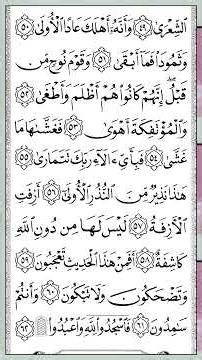 ٱلشِّعْرَىٰ ٤٩ وَأَنَّهُۥٓ أَهْلَكَ عَادًا ٱلْأُولَىٰ ٥٠
وَثَمُودَا۟ فَمَآ أَبْقَىٰ ٥١ وَقَوْمَ نُوحٍ مِّن
قَبْلُ ۖ إِنَّهُمْ كَانُوا۟ هُمْ أَظْلَمَ وَأَطْغَىٰ ٥٢
وَٱلْمُؤْتَفِكَةَ أَهْوَىٰ ٥٣ فَغَشَّىٰهَا مَا
غَشَّىٰ ٥٤ فَبِأَىِّ ءَالَآءِ رَبِّكَ تَتَمَارَىٰ ٥٥
هَٰذَا نَذِيرٌ مِّنَ ٱلنُّذُرِ ٱلْأُولَىٰٓ ٥٦ أَزِفَتِ
ٱلْءَازِفَةُ ٥٧ لَيْسَ لَهَا مِن دُونِ ٱللَّهِ
كَاشِفَةٌ ٥٨ أَفَمِنْ هَٰذَا ٱلْحَدِيثِ تَعْجَبُونَ ٥٩
وَتَضْحَكُونَ وَلَا تَبْكُونَ ٦٠ وَأَنتُمْ
سَٰمِدُونَ ٦١ فَٱسْجُدُوا۟ لِلَّهِ وَٱعْبُدُوا۟ ۩ ٦٢